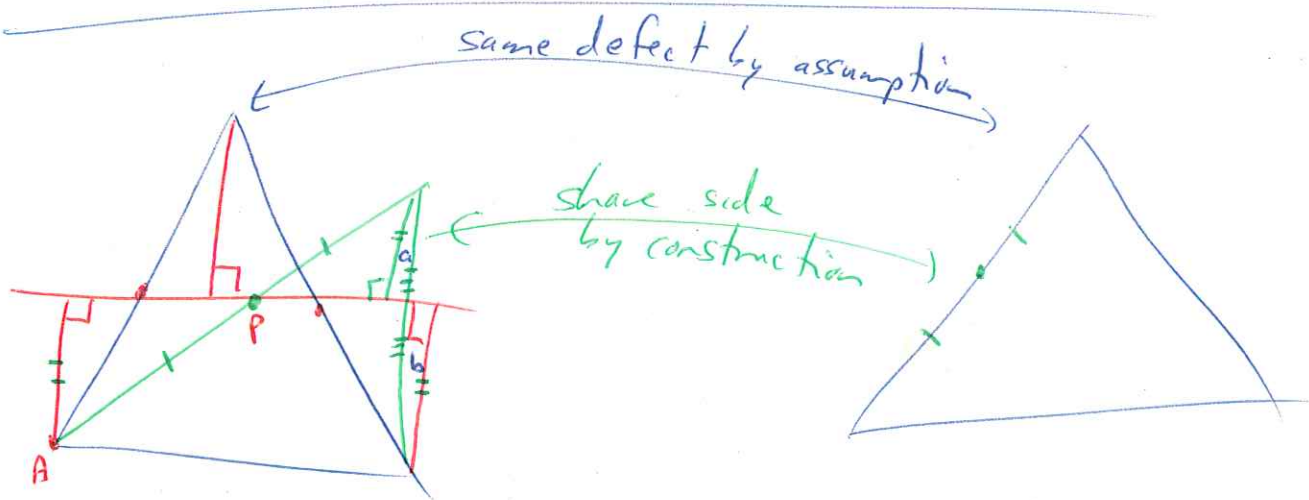 same defect by assumption
share side
by construction
a
P
b
A